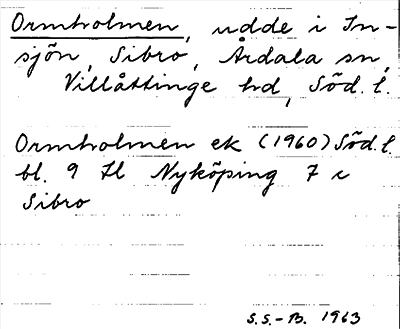 Ormholmen, udde i In-
sjön, Sibro, Årdala sn,
Villåttinge hd, Söd. l.
Ormholmen ek (1960) Söd. l.
bl. 9 Nyköping 7 c
Sibro
S.S.-B. 1963